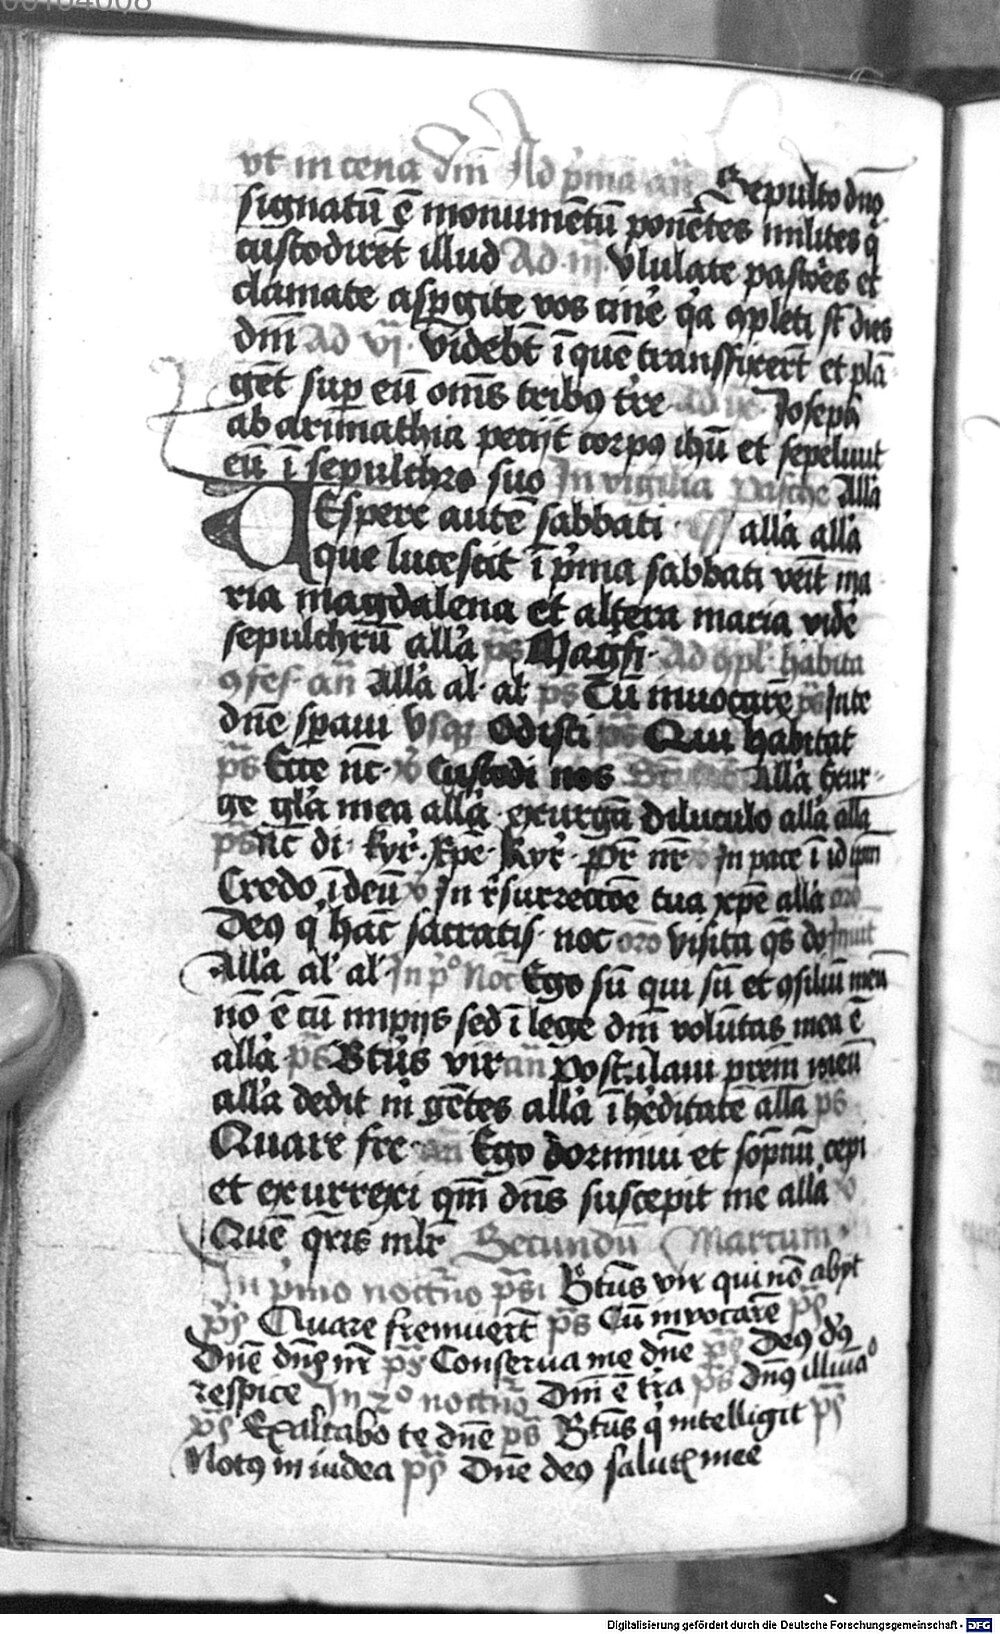 vt in cena dm̄ Ad p̉ma an̄ Sepulto dn̄o
signatū ē monumētū ponētes milites q̄
custodirēt illud Ad iij Vlulate pastores et
clamate aspgite vos cin̉e q̉a ꝯpleti st̄ dies
dm̄ Ad vj Videbt̄ ī quē transfixert̄ et plā
gēt sup eū om̄s tribꝰ tr̉e Joseph
ab arimathia petijt corpꝰ ihū et sepeliuit
eū ī sepulchro suo In vigilia pasche All̉a
VEspere autē sabbati all̉a all̉a
que lucescit ī p̉ma sabbati veīt ma
ria magdalena et altera maria vid̉e
sepulchrū all̉a ps̄ Magn̄ Ad ꝯpl̉ habita
ꝯfes an̄ All̉a al al ps̄ Cū inuocarē ps̄ Inte
dn̄e speraui Vsqꝫ Odisti ps̄ Qui habitat
ps̄ Ecce nc̄ Custodi nos All̉a Exur
ge gl̉a mea all̉a exurgā diluculo all̉a all̉a
ps̄ Nc̄ di kyr̉ Xpē Kyr̉ Pr̄ nr̄ In pace ī idipm̄
Credo ī deū In r̉surrectōe tua xpē all̉a oro
Deꝰ q̉ hāc sacratis noc oro visita qs̄ do Inuit
All̉a al̉ al̉ In pͦ Noc̄ Ego sū qui sū et ꝯsiliū meū
nō ē cū impijs sed ī lege dm̄ volūtas mea ē
all̉a ps̄ Btūs vir an̄ Postulaui prēm meū
all̉a dedit m̉ gētes all̉a ī h̉editatē all̉a ps̄
Quare fre an̄ Ego dormiui et sopnū cepi
et exurrexi qm̄ dn̄s suscepit me all̉a
Quē qr̄is ml̉r Secundū Marcum
In p̉mo noct̉no ps̄i Btūs vir qui nō abijt
ps̄ Quare fremuert̄ ps̄ Cū invocarē ps̄
Dn̄e dn̄s nr̄ ps̄ Conserua me dn̄e ps̄ Deꝰ dꝰ
respice In 2ͦ noct̉no Dm̄ ē tr̄a ps̄ dn̄s illuīaͦ
ps̄ Exaltabo te dn̄e ps̄ Btūs q̉ intelligit ps̄
Notꝰ in iudea ps̄ Dn̄e deꝰ salutꝭ mee
Digitalisierung gefördert durch die Deutsche Forschungsgemeinschaft - DFG